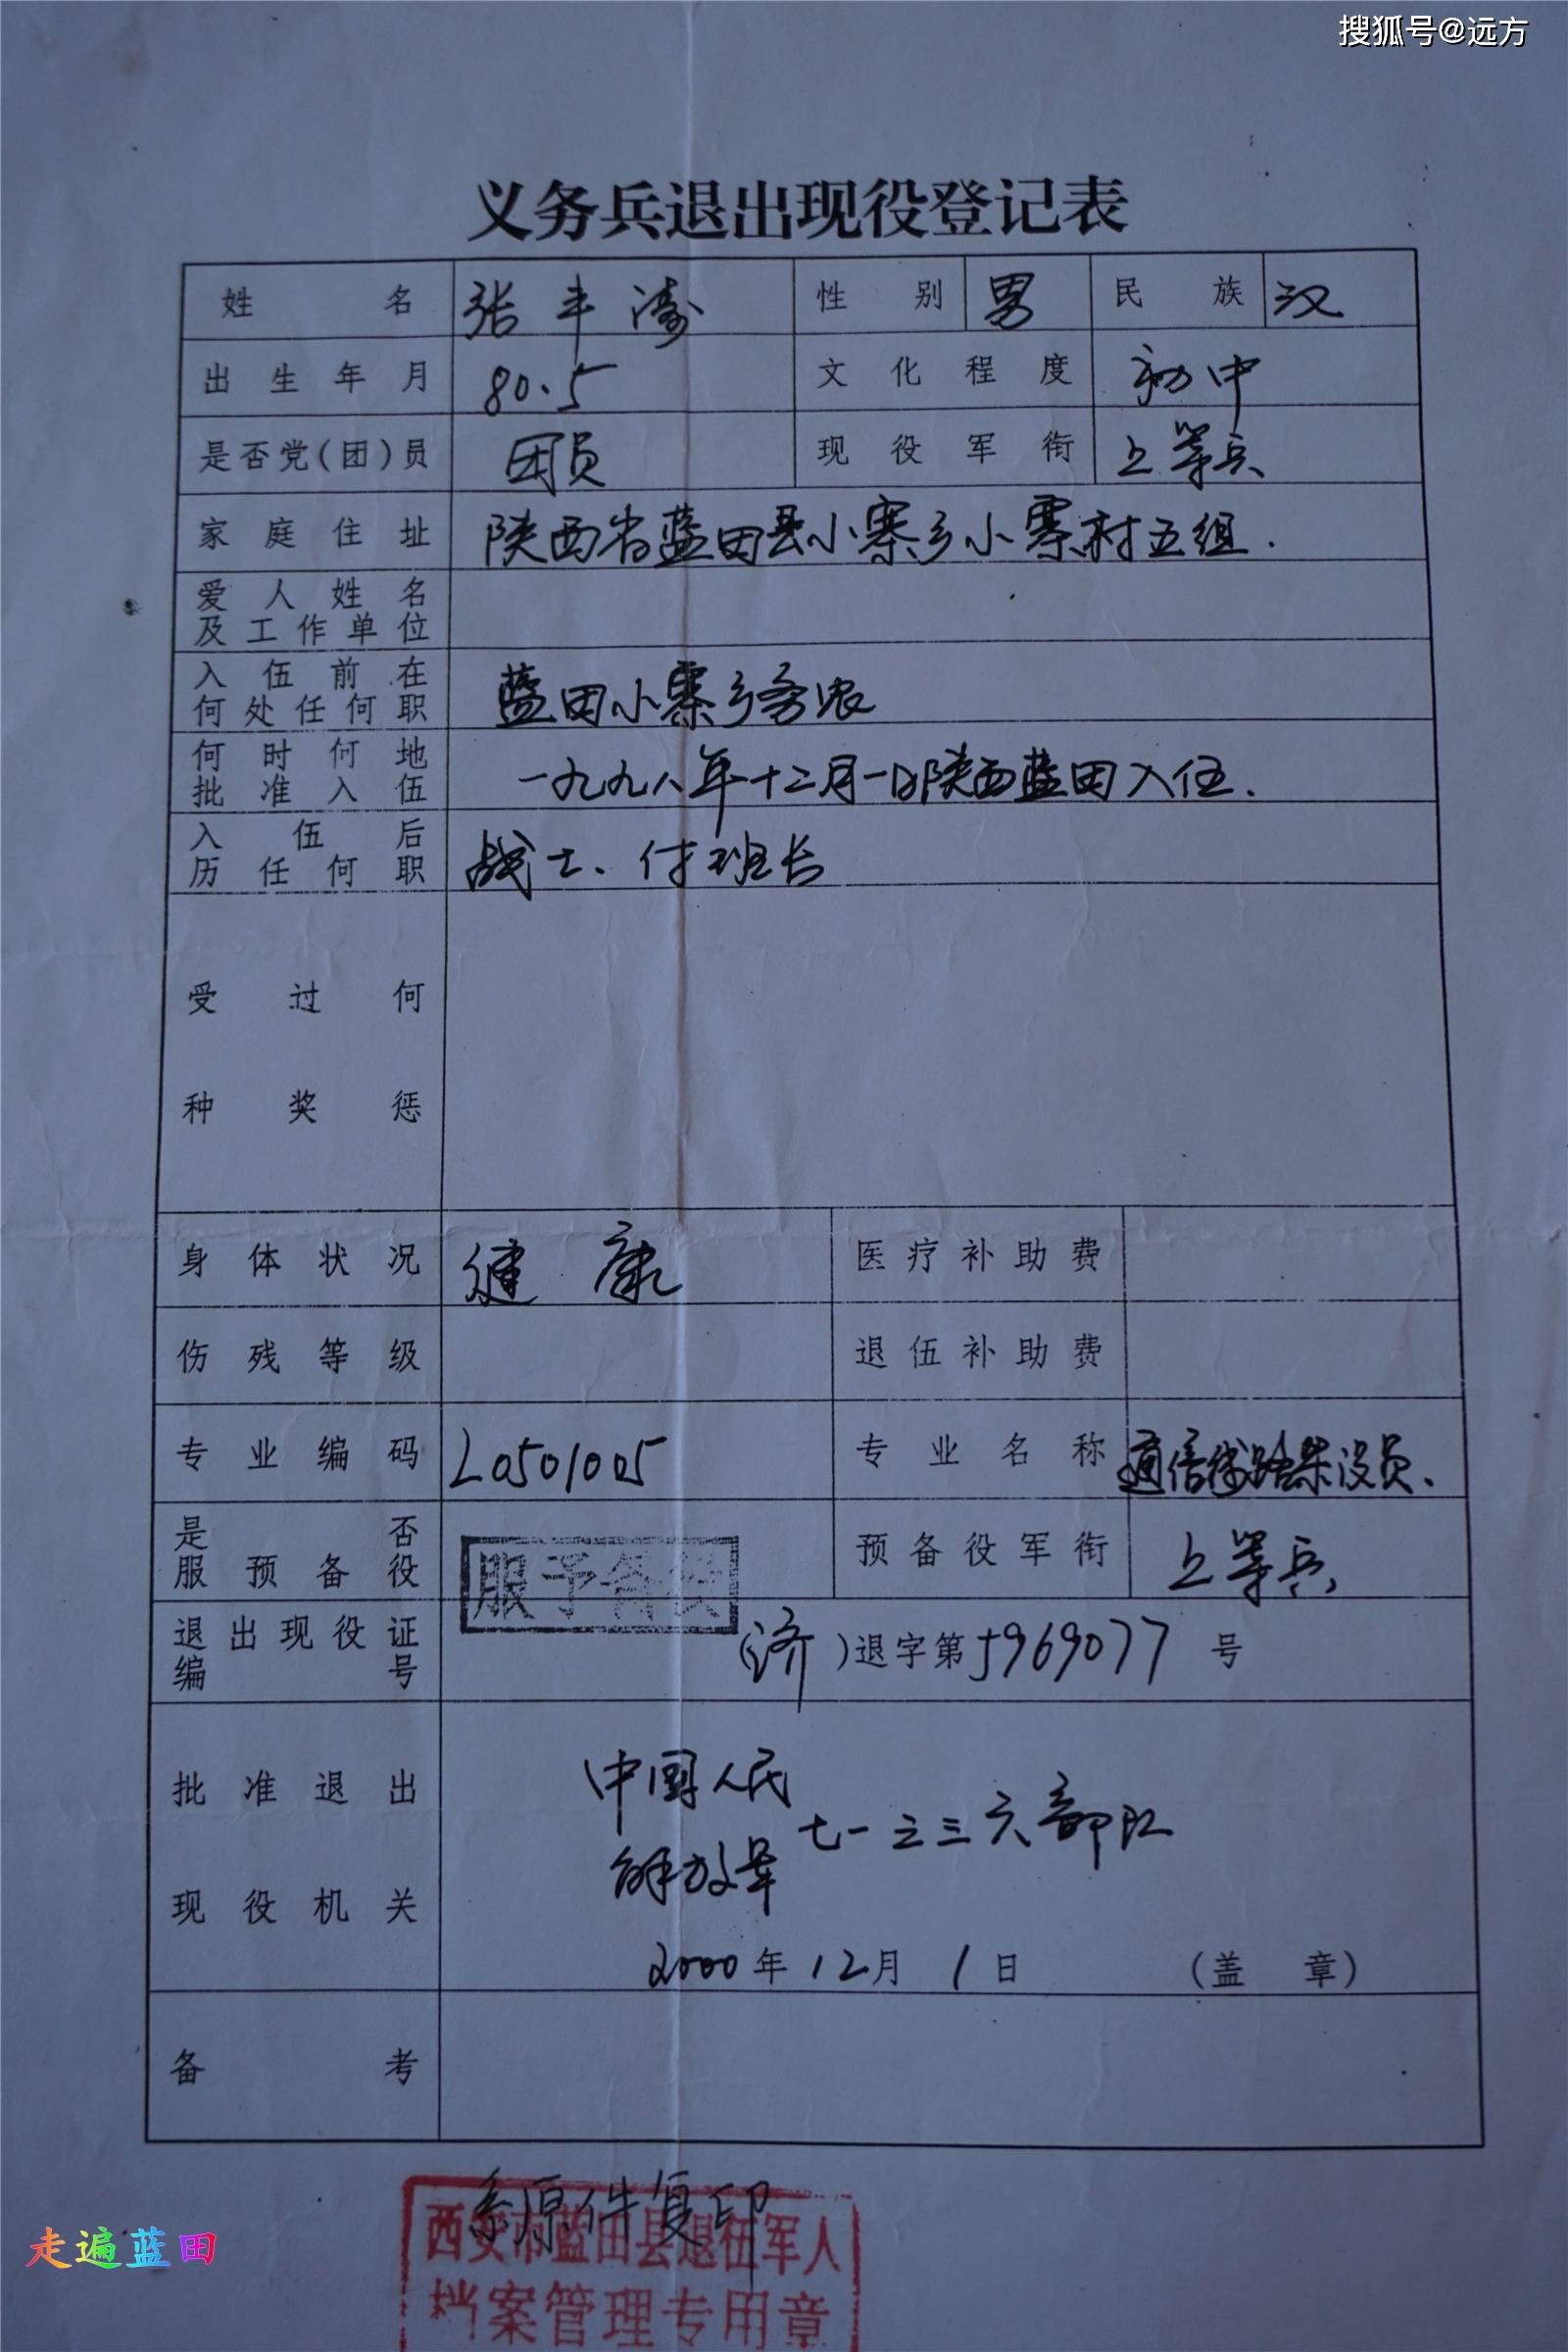 搜狐号@远方
义务兵退出现役登记表
姓名 张丰涛 性别 男 民族 汉
出生年月 80.5 文化程度 初中
是否党(团)员 团员 现役军衔 上等兵
家庭住址 陕西省蓝田县小寨乡小寨村五组.
爱人姓名
及工作单位
入伍前在
何处任何职 蓝田小寨乡务农
何时何地
批准入伍 一九九八年十二月一日陕西蓝田入伍.
入伍后
历任何职 战士、付班长
受过何
种奖惩
身体状况 健康 医疗补助费
伤残等级 退伍补助费
专业编码 L0501005 专业名称 通信线路架设员、
是否
服预备役 服予备役 预备役军衔 上等兵
退出现役证
编号 (济)退字第5969077号
批准退出
现役机关
中国人民
解放军 七一二三六部队
2000年12月1日 (盖章)
备考
系原件复印
西安市蓝田县退伍军人
档案管理专用章
走遍蓝田